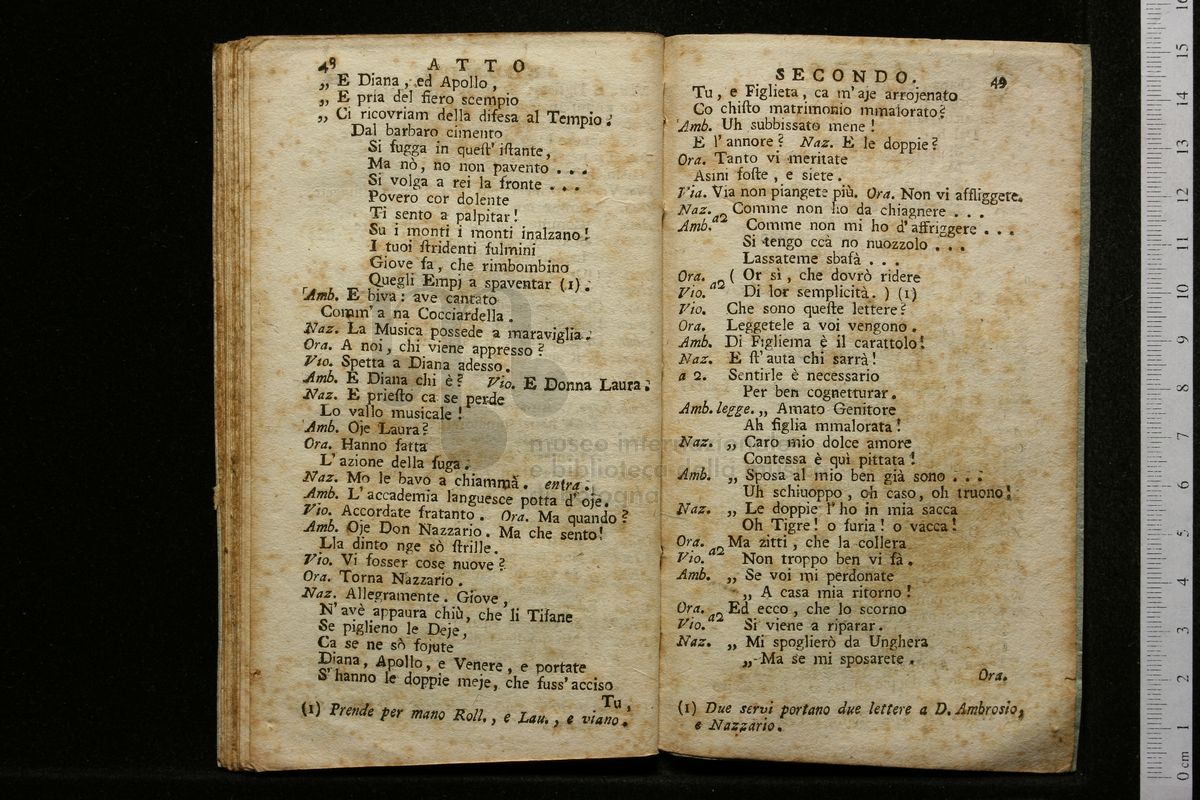 48 ATTO
„ E Diana, ed Apollo,
„ E pria del fiero scempio
„ Ci ricovriam della difesa al Tempio:
Dal barbaro cimento
Si fugga in quest' istante,
Ma nò, no non pavento . . .
Si volga a rei la fronte . . .
Povero cor dolente
Ti sento a palpitar!
Su i monti i monti inalzano!
I tuoi stridenti fulmini
Giove fa, che rimbombino
Quegli Empj a spaventar (1).
Amb. E biva: ave cantato
Comm' a na Cocciardella.
Naz. La Musica possede a maraviglia.
Ora. A noi, chi viene appresso?
Vio. Spetta a Diana adesso.
Amb. E Diana chi è? Vio. E Donna Laura.
Naz. E priesto ca se perde
Lo vallo musicale!
Amb. Oje Laura?
Ora. Hanno fatta
L' azione della fuga.
Naz. Mo le bavo a chiammà. entra.
Amb. L' accademia languesce potta d' oje.
Vio. Accordate fratanto. Ora. Ma quando?
Amb. Oje Don Nazzario. Ma che sento!
Lla dinto nge sò strille.
Vio. Vi fosser cose nuove?
Ora. Torna Nazzario.
Naz. Allegramente. Giove,
N' avè appaura chiù, che li Tifane
Se piglieno le Deje,
Ca se ne sò fojute
Diana, Apollo, e Venere, e portate
S' hanno le doppie meje, che fuss' acciso
Tu,
(1) Prende per mano Roll., e Lau., e viano.
SECONDO. 49
Tu, e Figlieta, ca m' aje arrojenato
Co chisto matrimonio mmalorato?
Amb. Uh subbissato mene!
E l' annore? Naz. E le doppie?
Ora. Tanto vi meritate
Asini foste, e siete.
Via. Via non piangete più. Ora. Non vi affliggete.
Naz. Comme non ho da chiagnere . . .
Amb. a2 Comme non mi ho d' affriggere . . .
Si tengo ccà no nuozzolo . . .
Lassateme sbafà . . .
Ora. a2 ( Or sì, che dovrò ridere
Vio. Di lor semplicità. ) (1)
Vio. Che sono queste lettere?
Ora. Leggetele a voi vengono.
Amb. Di Figliema è il carattolo!
Naz. E st' auta chi sarrà!
a 2. Sentirle è necessario
Per ben cognetturar.
Amb. legge. „ Amato Genitore
Ah figlia mmalorata!
Naz. „ Caro mio dolce amore
Contessa è quì pittata!
Amb. „ Sposa al mio ben già sono . . .
Uh schiuoppo, oh caso, oh truono!
Naz. „ Le doppie l' ho in mia sacca
Oh Tigre! o furia! o vacca!
Ora. a2 Ma zitti, che la collera
Vio. Non troppo ben vi fà.
Amb. „ Se voi mi perdonate
„ A casa mia ritorno!
Ora. a2 Ed ecco, che lo scorno
Vio. Si viene a riparar.
Naz. „ Mi spoglierò da Unghera
„ Ma se mi sposarete.
Ora.
(1) Due servi portano due lettere a D. Ambrosio,
e Nazzario.